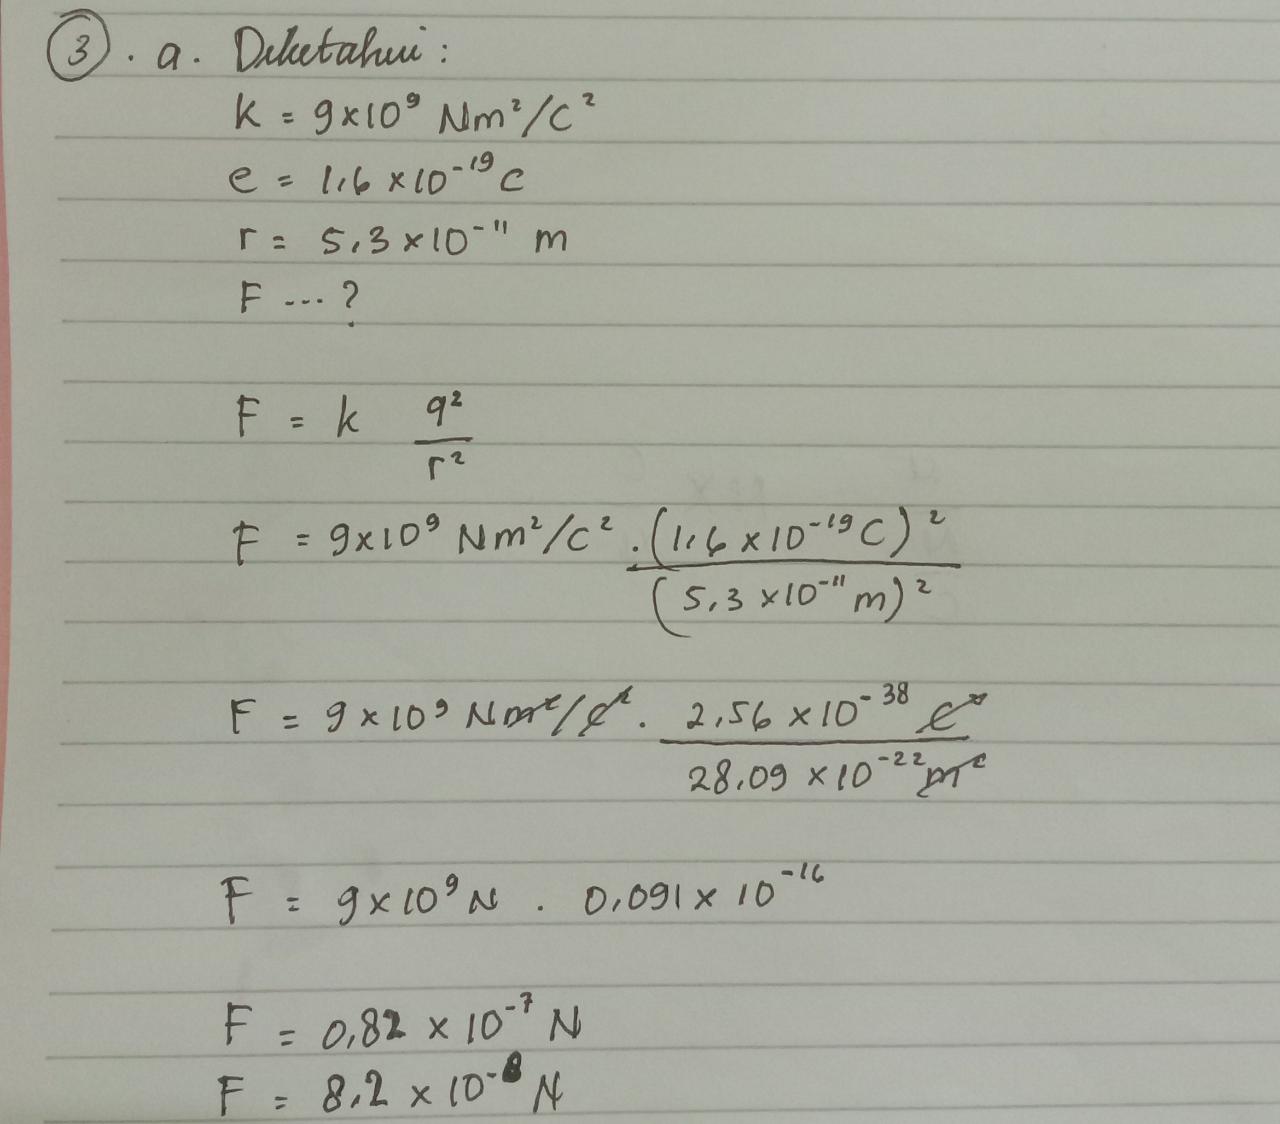 3. a. Diketahui :
k = 9×10⁹ Nm²/C²
e = 1,6 ×10⁻¹⁹ C
r = 5,3 ×10⁻¹¹ m
F ... ?
F = k q²/r²
F = 9×10⁹ Nm²/C² . (1,6 × 10⁻¹⁹ C)²/(5,3 ×10⁻¹¹ m)²
F = 9 × 10⁹ Nm²/C² . 2,56 × 10⁻³⁸ C²/28,09 × 10⁻²² m²
F = 9×10⁹ N . 0,091 × 10⁻¹⁶
F = 0,82 × 10⁻⁷ N
F = 8,2 × 10⁻⁸ N